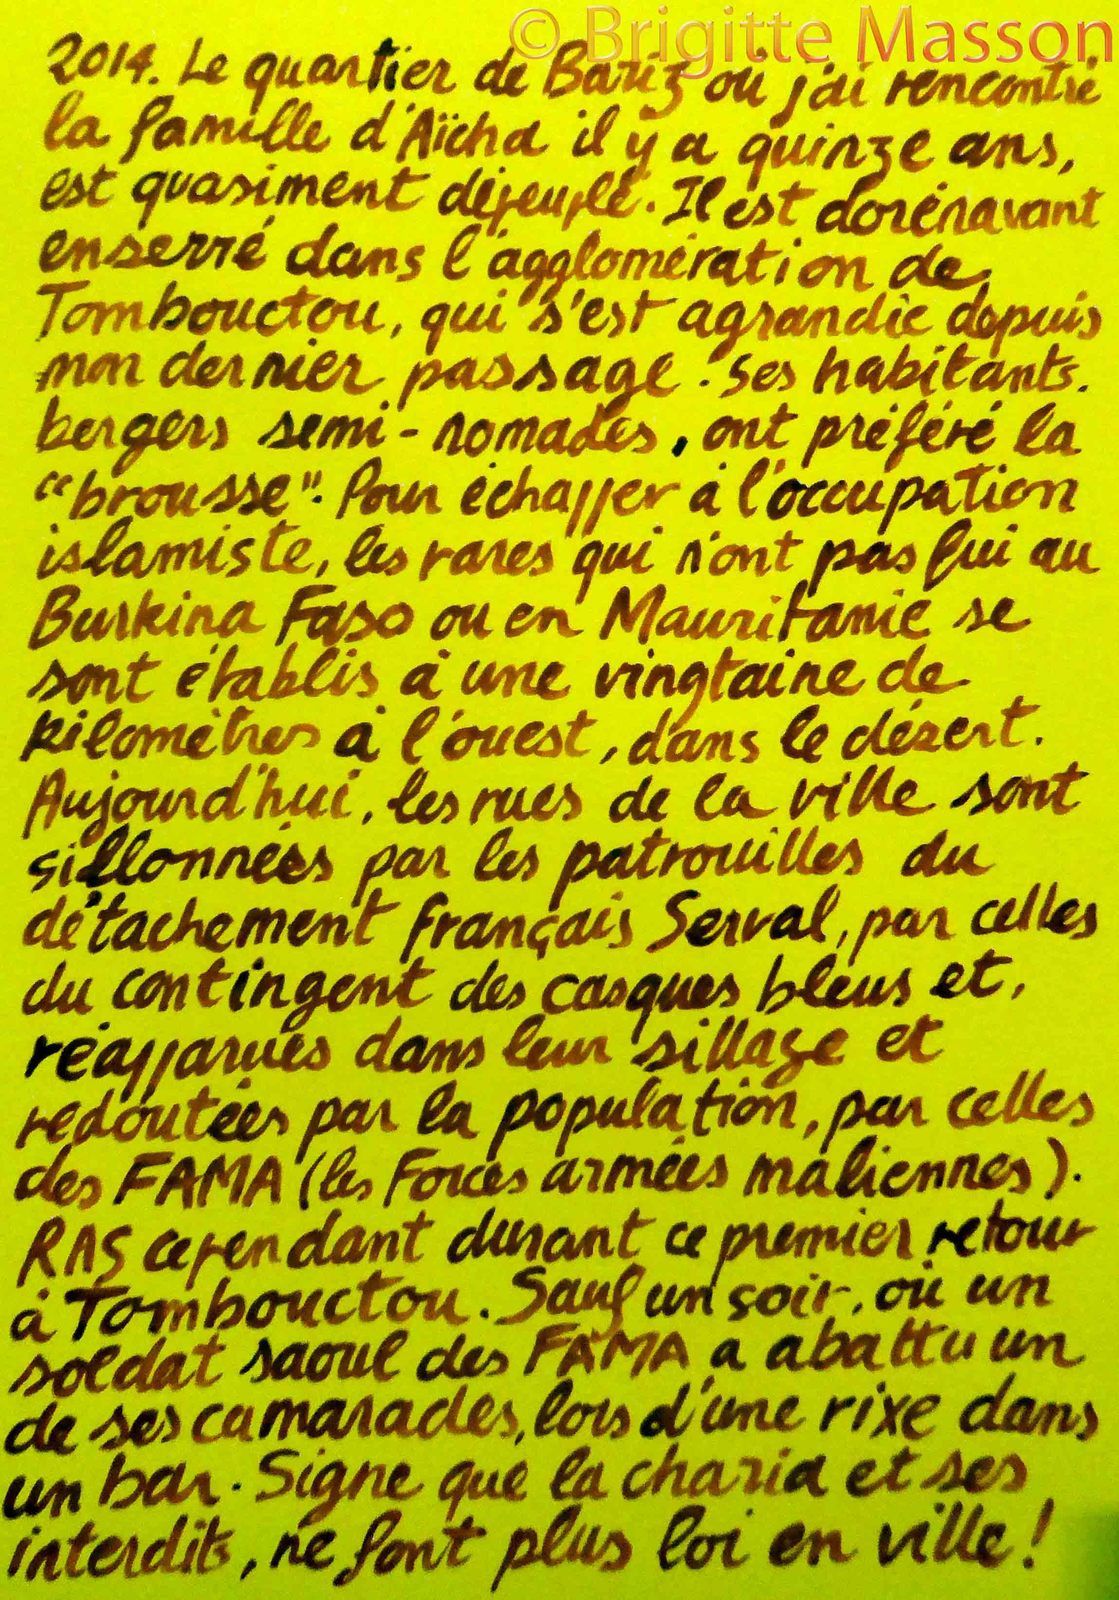 © Brigitte Masson
2014. Le quartier de Bariz où j'ai rencontré
la famille d'Aïcha il y a quinze ans,
est quasiment dépeuplé. Il est dorénavant
enserré dans l'agglomération de
Tombouctou, qui s'est agrandie depuis
mon dernier passage. Ses habitants.
bergers semi-nomades, ont préféré la
"brousse". Pour échapper à l'occupation
islamiste, les rares qui n'ont pas fui au
Burkina Faso ou en Mauritanie se
sont établis à une vingtaine de
kilomètres à l'ouest, dans le désert.
Aujourd'hui, les rues de la ville sont
sillonnées par les patrouilles du
détachement français Serval, par celles
du contingent des casques bleus et,
réapparues dans leur sillage et
redoutées par la population, par celles
des FAMA (les Forces armées maliennes).
RAS cependant durant ce premier retour
à Tombouctou. Sauf un soir, où un
soldat saoul des FAMA a abattu un
de ses camarades, lors d'une rixe dans
un bar. Signe que la charia et ses
interdits, ne font plus loi en ville !